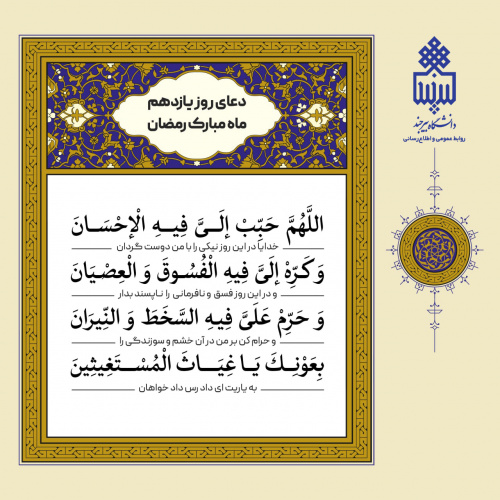 دعای روز یازدهم
ماه مبارک رمضان
اللَّهُمَّ حَبِّبْ إِلَيَّ فِيهِ الْإِحْسَانَ
خدایا در این روز نیکی را با من دوست گردان
وَ كَرِّهْ إِلَيَّ فِيهِ الْفُسُوقَ وَ الْعِصْيَانَ
و در این روز فسق و نافرمانی را ناپسند بدار
وَ حَرِّمْ عَلَيَّ فِيهِ السَّخَطَ وَ النِّيرَانَ
و حرام کن بر من در آن خشم و سوزندگی را
بِعَوْنِكَ يَا غِيَاثَ الْمُسْتَغِيثِينَ
به یاریت ای داد رس داد خواهان
دانشگاه بیرجند
روابط عمومی و اطلاع‌رسانی